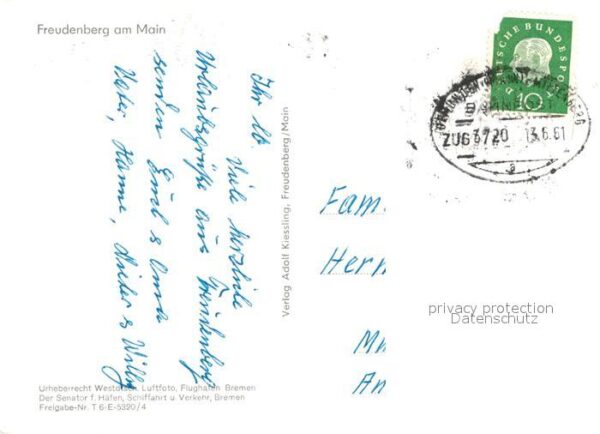 Freudenberg am Main
Ihr lb.
Viele herzliche
Urlaubsgrüße aus Freudenberg
senden Emil & Oma
Vater, Hanne, &
Willy
Verlag Adolf Kiessling, Freudenberg/Main
Fam.
Herm
Urheberrecht Westdeutsch. Luftfoto, Flughafen Bremen
Der Senator f. Häfen, Schiffahrt u. Verkehr, Bremen
Freigabe-Nr. T 6-E-5320/4
DEUTSCHE BUNDESPOST
10
BAHNPOST
ZUG 3720 13.6.61
a
privacy protection
Datenschutz